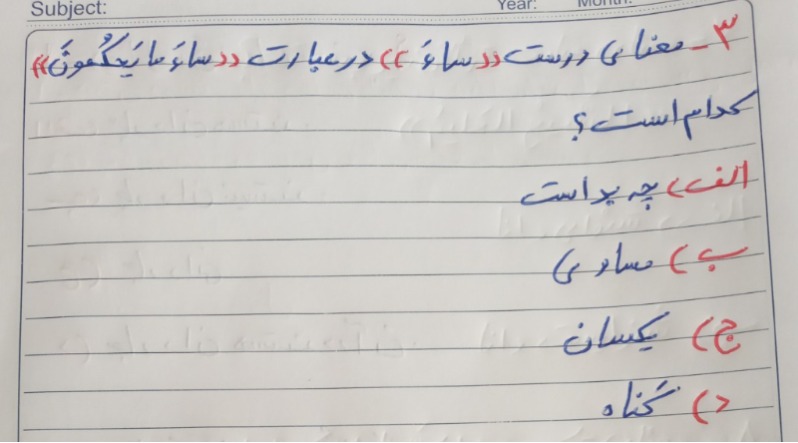 Subject:
Year:
Month:
۳- معنای درست «ساءَ» در عبارت «ساءَ ما یَحکُمونَ»
کدام است؟
الف) چه بد است
ب) مساوی
ج) یکسان
د) گناه